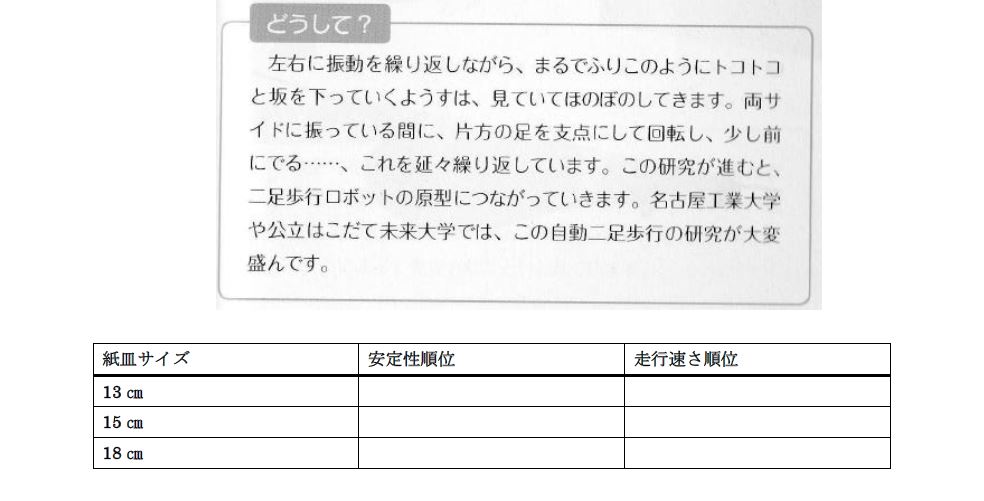 どうして？
左右に振動を繰り返しながら、まるでふりこのようにトコトコ
と坂を下っていくようすは、見ていてほのぼのしてきます。両サ
イドに振っている間に、片方の足を支点にして回転し、少し前
にでる……、これを延々繰り返しています。この研究が進むと、
二足歩行ロボットの原型につながっていきます。名古屋工業大学
や公立はこだて未来大学では、この自動二足歩行の研究が大変
盛んです。
紙皿サイズ 安定性順位 走行速さ順位
13 ㎝
15 ㎝
18 ㎝